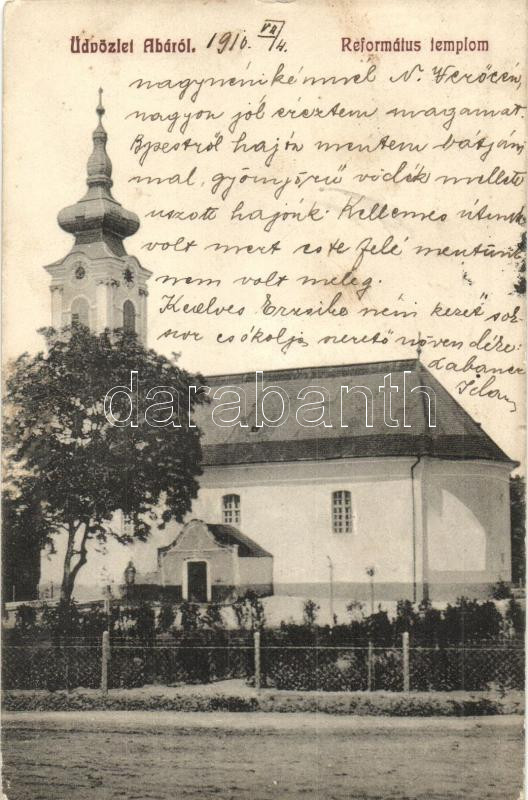 Üdvözlet Abáról. 1910. VII/4.
Református templom
nagynénikémmel N. Verőcén,
nagyon jól éreztem magamat.
Bpestről hajón mentem bátyám
mal, gyönyörű vidék mellett
úszott hajónk. Kellemes útunk
volt mert este felé mentünk
nem volt meleg.
Kedves Erzsike néni kezét sok-
szor csókolja szerető növendéke:
Labancz
Ilona
darabanth